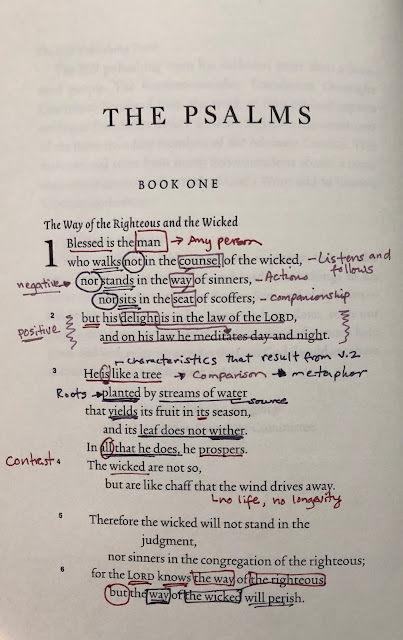 THE PSALMS
BOOK ONE
The Way of the Righteous and the Wicked
1 Blessed is the man → Any person
who walks not in the counsel of the wicked, - Listens and follows
negative → nor stands in the way of sinners, - Actions
nor sits in the seat of scoffers; - companionship
positive 2 but his delight is in the law of the LORD,
and on his law he meditates day and night.
characteristics that result from v.2
3 He is like a tree → Comparison → metaphor
Roots → planted by streams of water source
that yields its fruit in its season,
and its leaf does not wither.
In all that he does, he prospers.
Contrast 4 The wicked are not so,
but are like chaff that the wind drives away.
no life, no longevity
5 Therefore the wicked will not stand in the
judgment,
nor sinners in the congregation of the righteous;
6 for the LORD knows the way of the righteous,
but the way of the wicked will perish.